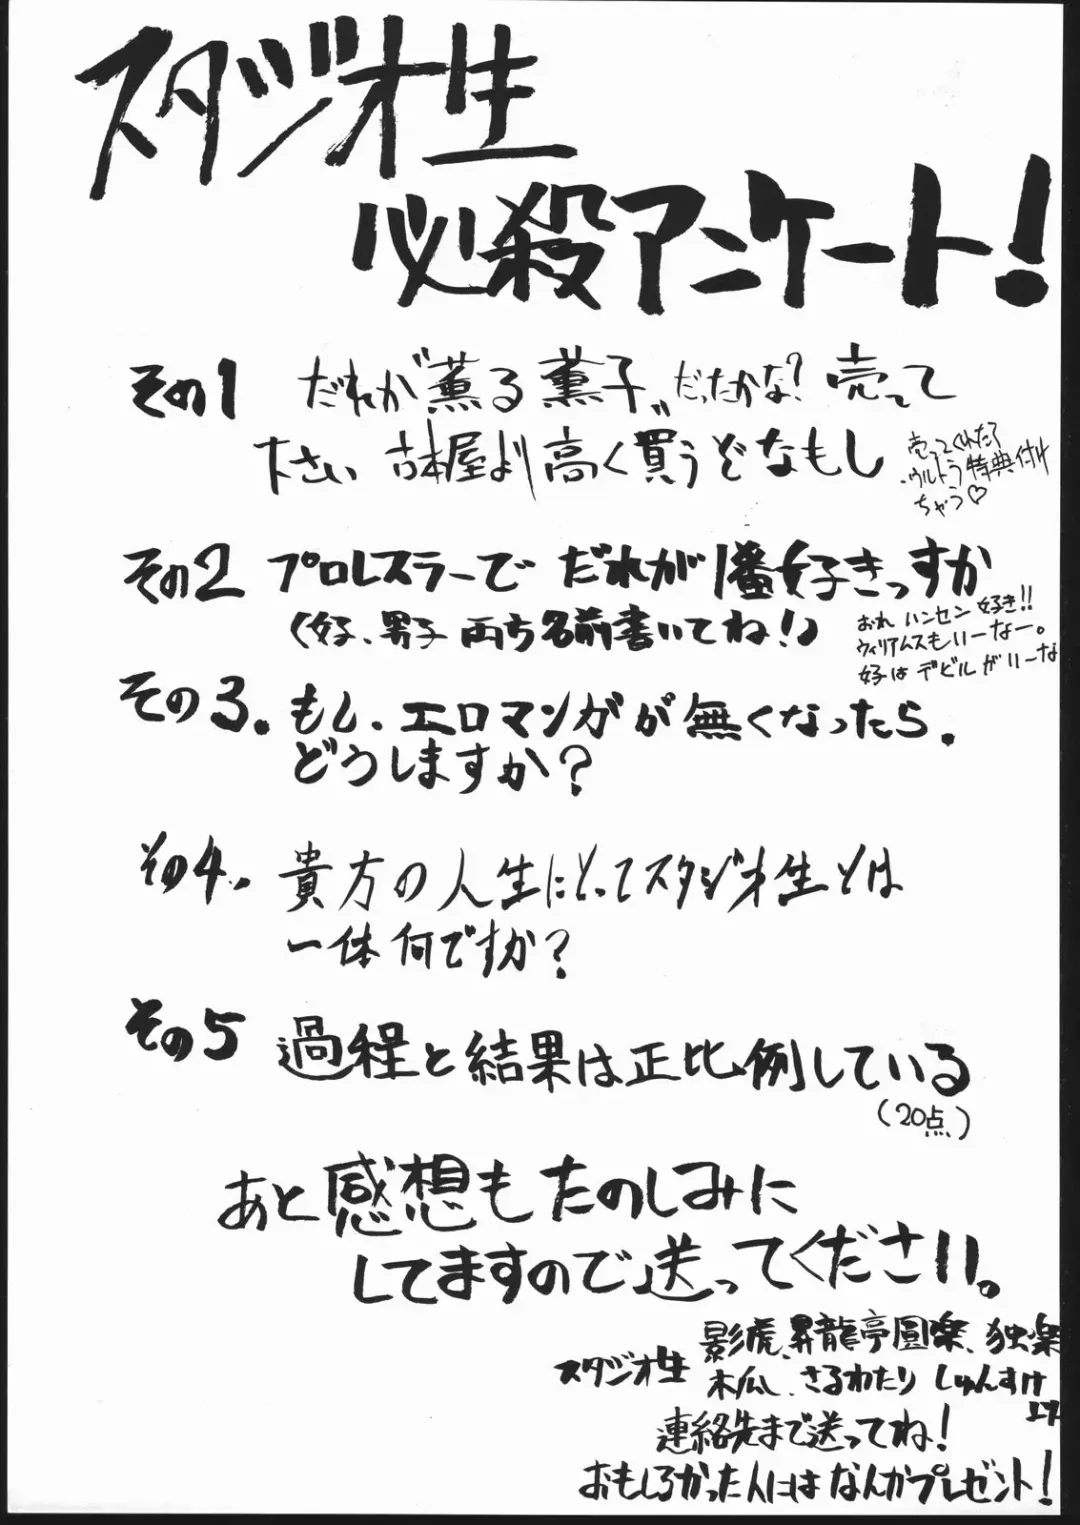 スタジオ生
必殺アンケート！
その1 だれか“薫る薫子”だったかな？売って
下さい 古本屋より高く買うぞなもし
売ってくれたら
ウルトラ特典付け
ちゃう♡
その2 プロレスラーでだれが1番好きっすか
(女子、男子両方名前書いてね！)
おれ ハンセン好き!!
ウィリアムスもいーなー。
女子は デビルがいーな
その3. もし、エロマンガが無くなったら、
どうしますか？
その4. 貴方の人生にとってスタジオ生とは
一体何ですか？
その5 過程と結果は正比例している
(20点)
あと感想もたのしみに
してますので送ってください。
スタジオ生 影虎、昇龍亭圓楽、独楽
木瓜、さるわたり しゅんすけ
連絡先まで送ってね！
おもしろかった人にはなんかプレゼント！